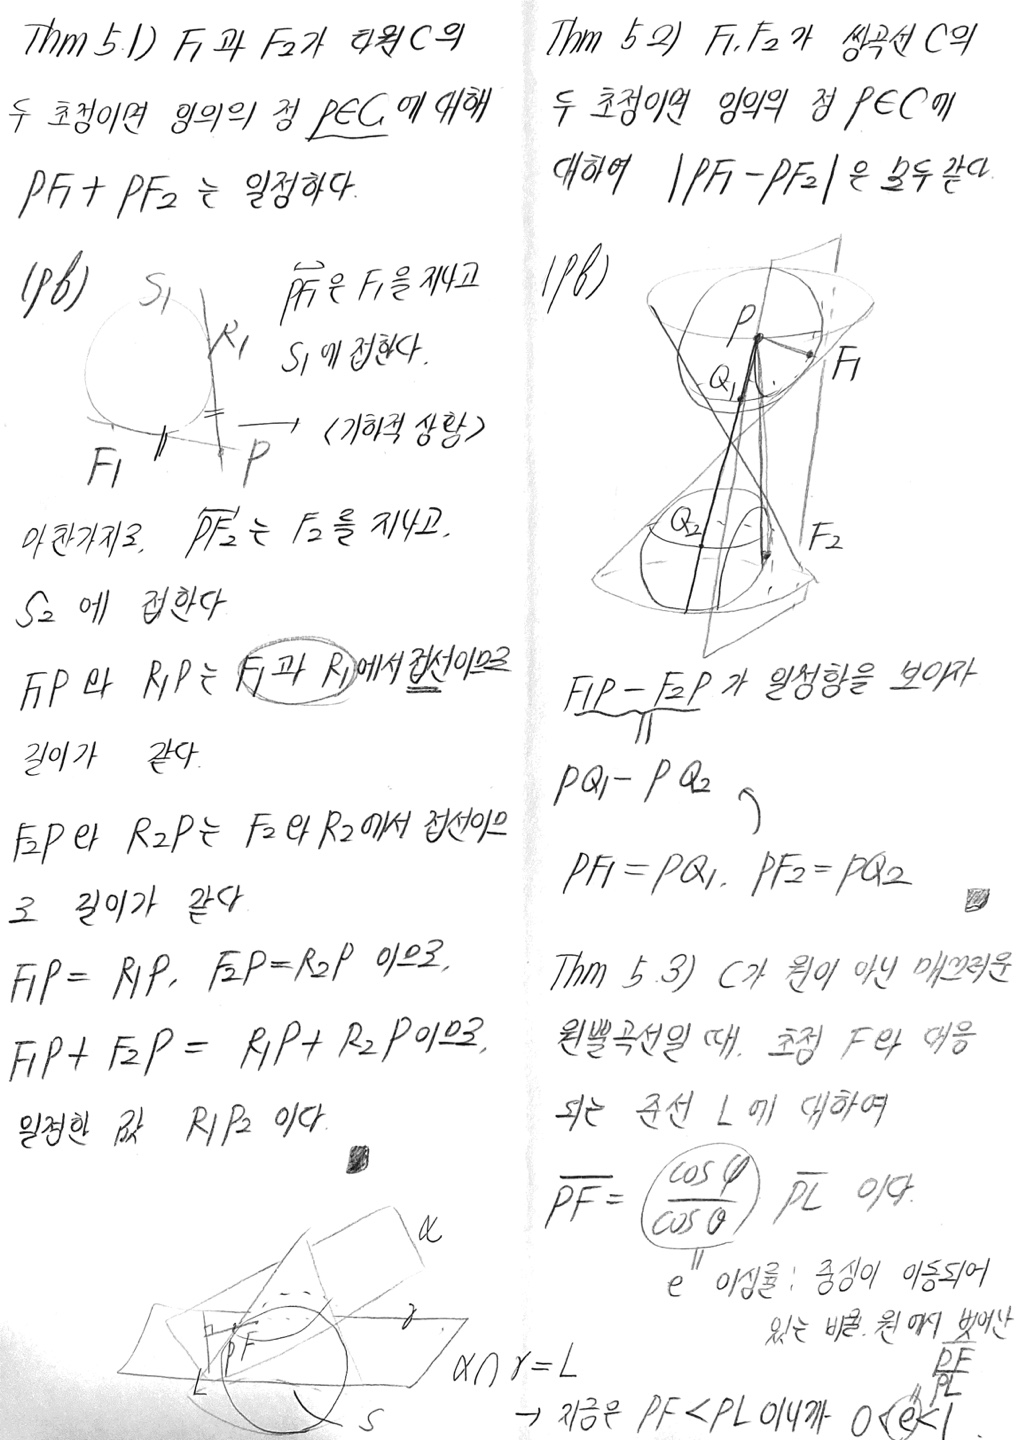 Thm 5.1) F₁과 F₂가 타원 C의
두 초점이면 임의의 점 P∈C에 대해
PF₁ + PF₂ 는 일정하다.
(pf)
S₁
R₁
F₁
P
PF₁은 F₁을 지나고
S₁에 접한다.
→ <기하적 상황>
마찬가지로, PF₂는 F₂를 지나고,
S₂에 접한다
F₁P와 R₁P는 F₁과 R₁에서 접선이므로
길이가 같다.
F₂P와 R₂P는 F₂와 R₂에서 접선이므
로 길이가 같다
F₁P = R₁P, F₂P = R₂P 이므로,
F₁P + F₂P = R₁P + R₂P이므로,
일정한 값 R₁P₂ 이다.
α
γ
P F
L
S
α∩γ = L
Thm 5.2) F₁, F₂가 쌍곡선 C의
두 초점이면 임의의 점 P∈C에
대하여 |PF₁ - PF₂|은 모두 같다.
(pf)
P
F₁
Q₁
Q₂
F₂
F₁P - F₂P가 일정함을 보이자
||
PQ₁ - PQ₂
PF₁ = PQ₁, PF₂ = PQ₂
Thm 5.3) C가 원이 아닌 매끄러운
원뿔곡선일 때, 초점 F와 대응
되는 준선 L에 대하여
PF = cos φ / cos θ PL 이다.
||
e 이심률: 중심이 이동되어
있는 비율. 원에서 벗어난
PF / PL
||
→ 지금은 PF < PL이니까 0 < e < 1.